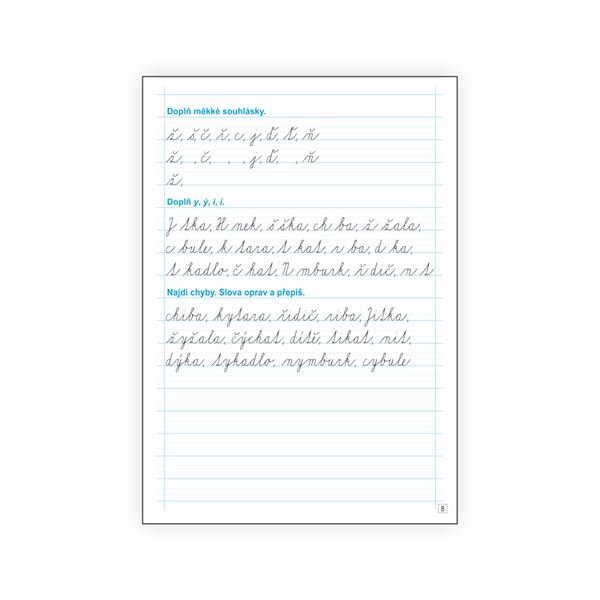 Doplň měkké souhlásky.
ž, š, č, ř, c, j, ď, ť, ň
ž, , č, , , j, ď, , ň
ž,
Doplň y, ý, i, í.
J tka, H nek, š ška, ch ba, ž žala,
c bule, k tara, t kat, r ba, d ka,
t kadlo, č hat, N mburk, ř dič, n t
Najdi chyby. Slova oprav a přepiš.
chiba, kytara, řidič, riba, Jitka,
žyžala, čýchat, dítě, tikat, nit,
dýka, tykadlo, nymburk, cybule
8